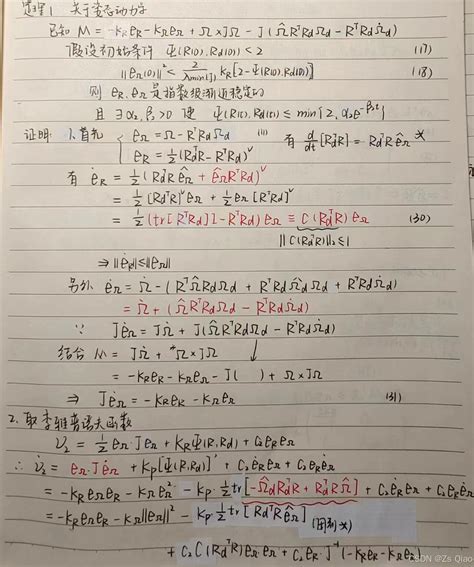 定理1 关于姿态动力学
已知 M = -k_R e_R - k_Ω e_Ω + Ω×JΩ - J(Ω̂RᵀR_dΩ_d - RᵀR_dΩ̇_d)
假设初始条件 Ψ(R(0), R_d(0)) < 2 (17)
||e_Ω(0)||² < 2/λmin(J) k_R[2-Ψ(R(0),R_d(0))] (18)
则 e_R, e_Ω 是指数级渐近稳定的
且 ∃ α₂, β₂>0 使 Ψ(R(0),R_d(0)) ≤ min{2, α₂e^{-β₂t}}
证明: 1. 首先 { e_Ω = Ω - RᵀR_dΩ_d (11) 有 d/dt[R_dᵀR] = R_dᵀRê_Ω *
e_R = ½(R_dᵀR - RᵀR_d)ᵛ
有 ė_R = ½(R_dᵀRê_Ω + ê_ΩRᵀR_d)ᵛ
= ½[R_dᵀR]ᵛe_Ω + ½e_Ω[RᵀR_d]ᵛ
= ½(tr[RᵀR_d]I - RᵀR_d)e_Ω ≡ C(R_dᵀR)e_Ω (30)
||C(R_dᵀR)||₂ ≤ 1
⇒ ||ė_R|| ≤ ||e_Ω||
另外 ė_Ω = Ω̇ - (
= Ω̇ + (Ω̂RᵀR_dΩ_d - RᵀR_dΩ̇_d)
∵ Jė_Ω = JΩ̇ + J(Ω̂RᵀR_dΩ_d - RᵀR_dΩ̇_d)
结合 M = JΩ̇ + Ω×JΩ
= -k_R e_R - k_Ω e_Ω - J( ) + Ω×JΩ
⇒ Jė_Ω = -k_R e_R - k_Ω e_Ω (31)
2. 取李雅普诺夫函数
V₂ = ½e_Ω·Je_Ω + k_RΨ(R,R_d) + c₂e_R e_Ω
∴ V̇₂ = e_Ω·Jė_Ω + k_P[Ψ(R,R_d)]' + c₂ė_R e_Ω + c₂e_R ė_Ω
= -k_R e_Ω e_R - k_Ω e_Ω² - k_P·½tr[-Ω̂_dR_dᵀR + R_dᵀRΩ̂] + c₂ė_R e_Ω + c₂e_R ė_Ω
= -k_R e_Ω e_R - k_Ω||e_Ω||² - k_P ½tr[R_dᵀRê_Ω] (因则*)
+ c₂C(R_dᵀR)e_Ω e_Ω + c₂e_R·J⁻¹(-k_R e_R - k_Ω e_Ω)
CSDN @Zs Qiao